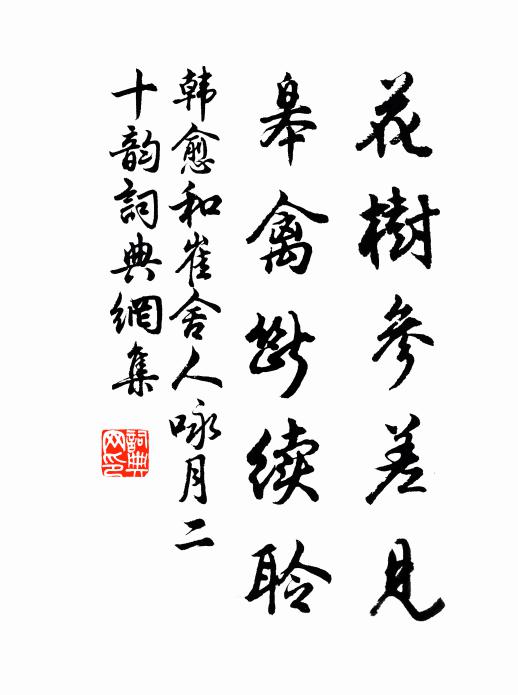 花樹參差見
皋禽斷续聆
韩愈和崔舍人咏月二
十韵詞典網集
詞典
网印